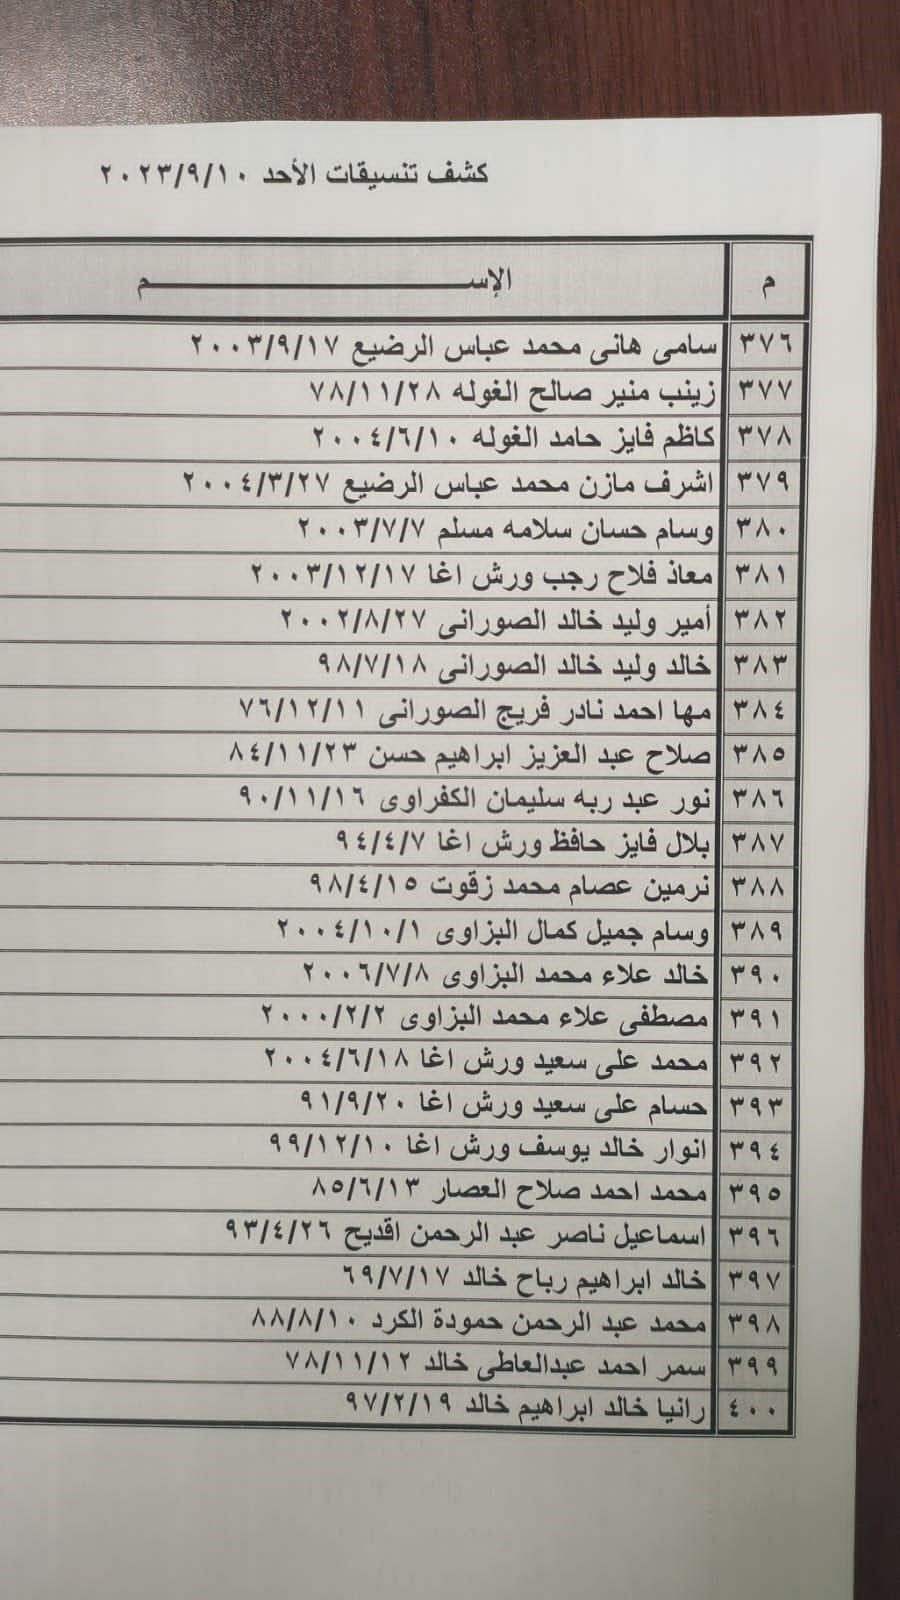 كشف تنسيقات الأحد ٢٠٢٣/٩/١٠
م الإســـــــــــــــــــــم
٣٧٦ سامى هانى محمد عباس الرضيع ٢٠٠٣/٩/١٧
٣٧٧ زينب منير صالح الغوله ٧٨/١١/٢٨
٣٧٨ كاظم فايز حامد الغوله ٢٠٠٤/٦/١٠
٣٧٩ اشرف مازن محمد عباس الرضيع ٢٠٠٤/٣/٢٧
٣٨٠ وسام حسان سلامه مسلم ٢٠٠٣/٧/٧
٣٨١ معاذ فلاح رجب ورش اغا ٢٠٠٣/١٢/١٧
٣٨٢ أمير وليد خالد الصورانى ٢٠٠٢/٨/٢٧
٣٨٣ خالد وليد خالد الصورانى ٩٨/٧/١٨
٣٨٤ مها احمد نادر فريج الصورانى ٧٦/١٢/١١
٣٨٥ صلاح عبد العزيز ابراهيم حسن ٨٤/١١/٢٣
٣٨٦ نور عبد ربه سليمان الكفراوى ٩٠/١١/١٦
٣٨٧ بلال فايز حافظ ورش اغا ٩٤/٤/٧
٣٨٨ نرمين عصام محمد زقوت ٩٨/٤/١٥
٣٨٩ وسام جميل كمال البزاوى ٢٠٠٤/١٠/١
٣٩٠ خالد علاء محمد البزاوى ٢٠٠٦/٧/٨
٣٩١ مصطفى علاء محمد البزاوى ٢٠٠٠/٢/٢
٣٩٢ محمد على سعيد ورش اغا ٢٠٠٤/٦/١٨
٣٩٣ حسام على سعيد ورش اغا ٩١/٩/٢٠
٣٩٤ انوار خالد يوسف ورش اغا ٩٩/١٢/١٠
٣٩٥ محمد احمد صلاح العصار ٨٥/٦/١٣
٣٩٦ اسماعيل ناصر عبد الرحمن اقديح ٩٣/٤/٢٦
٣٩٧ خالد ابراهيم رباح خالد ٦٩/٧/١٧
٣٩٨ محمد عبد الرحمن حمودة الكرد ٨٨/٨/١٠
٣٩٩ سمر احمد عبدالعاطى خالد ٧٨/١١/١٢
٤٠٠ رانيا خالد ابراهيم خالد ٩٧/٢/١٩